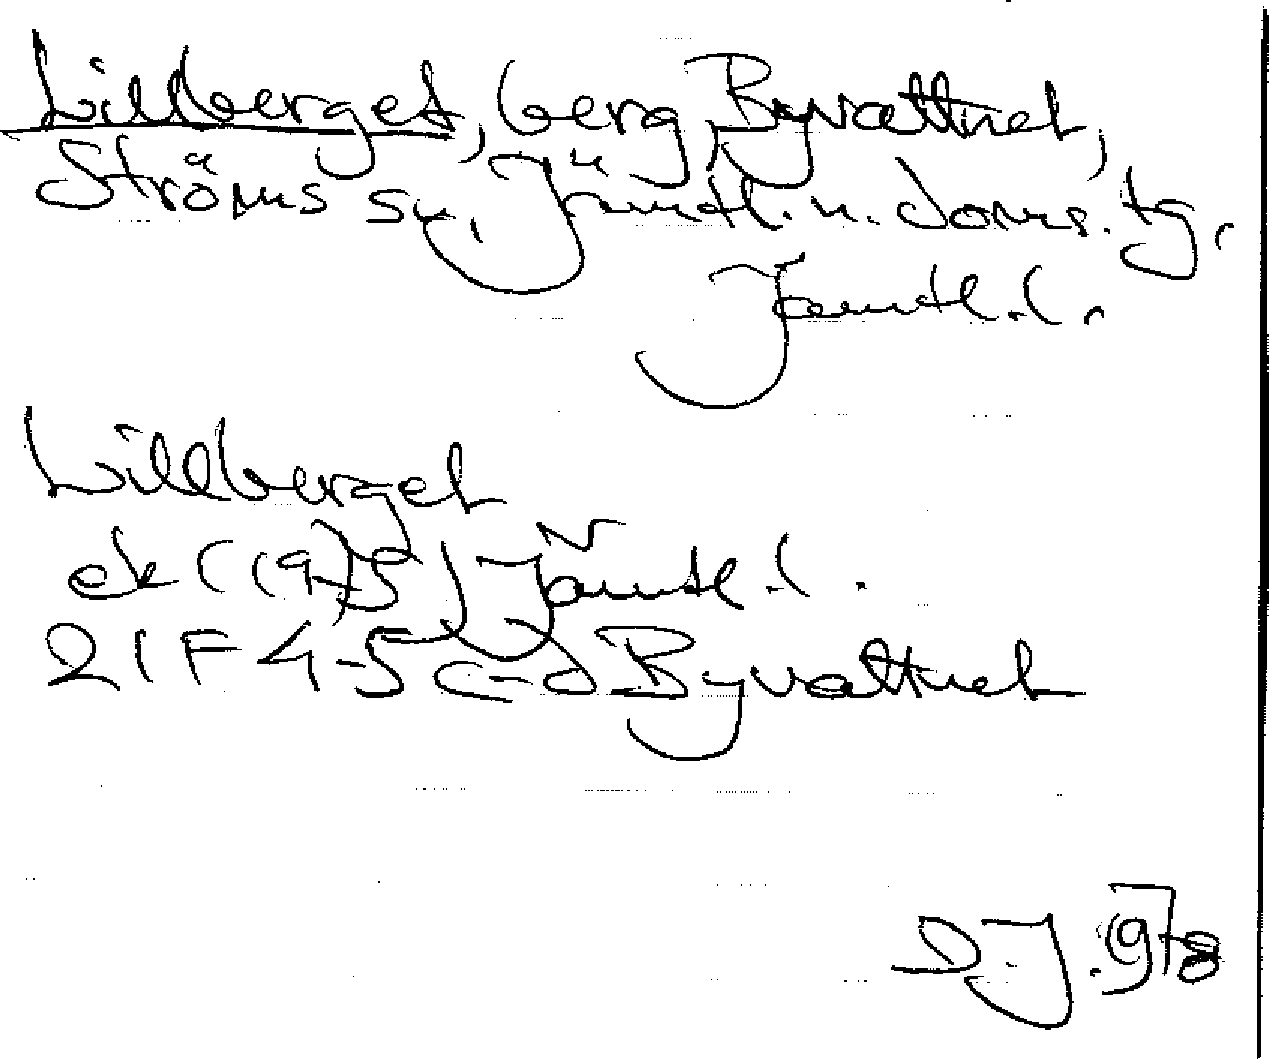 Lillberget, berg, Byvattnet,
Ströms sn, Jämtl. n. doms. tg,
Jämtl. l.
Lillberget
ek (1975) Jämtl. l.
21F 4-5 c-d Byvattnet
D.J. 1978